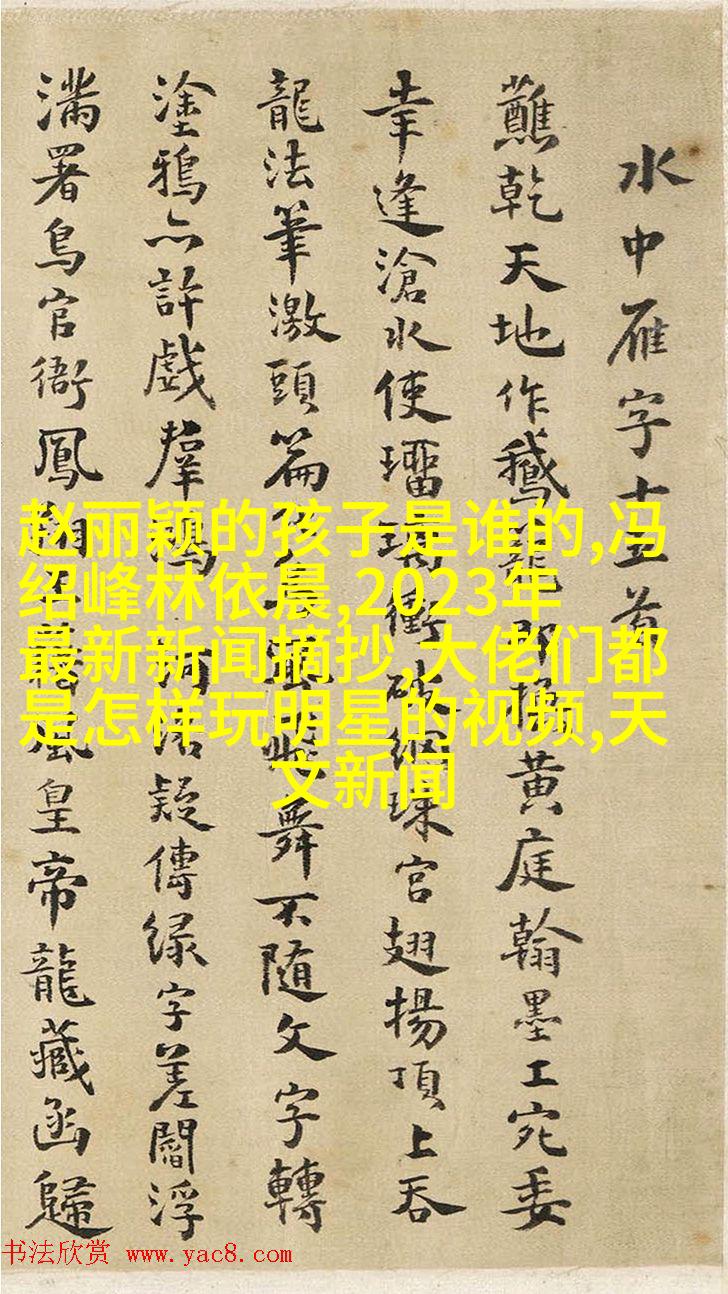 水中雁字十五首
蘸乾天地作鵝籠即換黃庭翰墨工宛委
幸逢滄水使璢璃衝破網珠宮翅揚頂上吞
龍法筆激頭篇舞不隨文字轉
塗鴉亦許戲群鷗疑傳綠字差闇浮
滿署鳥官衙鳳風皇帝龍藏函歸
赵丽颖的孩子是谁的,冯
绍峰林依晨,2023年
最新新闻摘抄,大佬们都
是怎样玩明星的视频,天
文新闻
书法欣赏 www.yac8.com